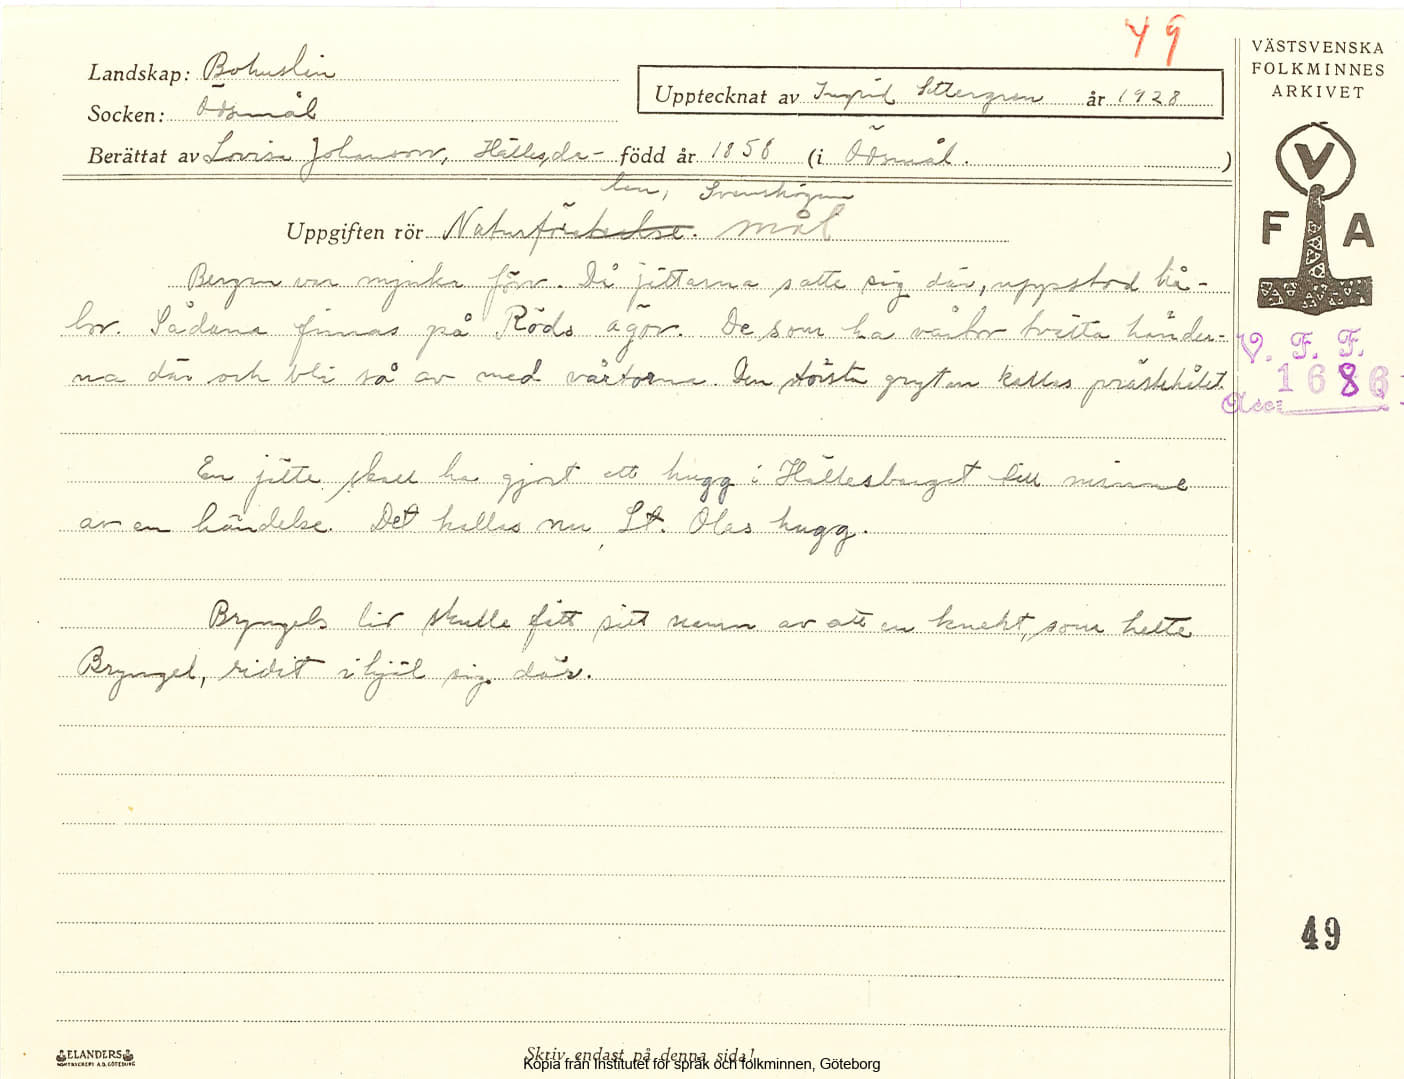 49
VÄSTSVENSKA
FOLKMINNES
ARKIVET
Landskap: Bohuslän
Socken: Ödsmål
Upptecknat av Ingrid Settergren år 1928
Berättat av Lovisa Johansson, Hälles,da-
len, Svenshögen
född år 1858 (i Ödsmål. )
Uppgiften rör Naturföreteelse. mål
Bergen var mjuka förr. Då jättarna satte sig där, uppstod hå-
lor. Sådana finnas på Röds ägor. De som ha vårtor tvätta händer-
na där och bli så av med vårtorna. Den största grytan kallas prästehålet.
En jätte skall ha gjort ett hugg i Hällesberget till minne
av en händelse. Det kallas nu St. Olas hugg.
Bryngels lid skulle fått sitt namn av att en knekt, som hette
Bryngel, ridit ihjäl sig där.
V
F A
V. F. F.
1686
Acc:
49
ELANDERS
BOKTRYCKERI A.B. GÖTEBORG
Skriv endast på denna sida!
Kopia från Institutet för språk och folkminnen, Göteborg